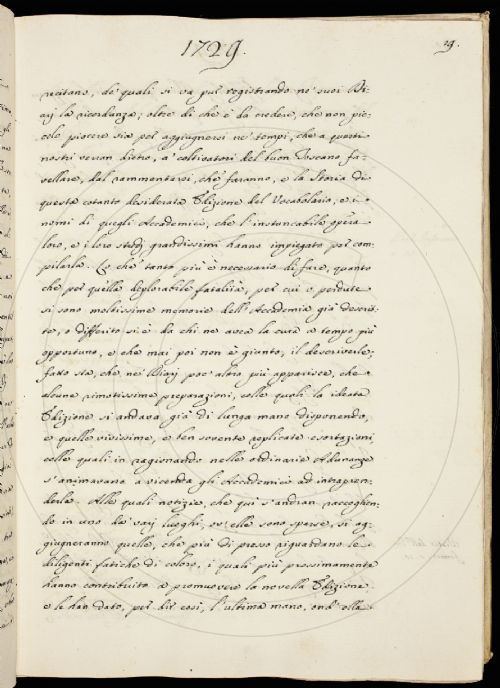 1729.
29.
recitano, de' quali si va pur registrando ne' suoi Di-
arj la ricordanza; oltre di che è da credere, che non pic-
colo piacere sia per aggiugnersi ne' tempi, che a questi
nostri verran dietro, a' coltivatori del buon Toscano fa-
vellare, dal rammentarsi, che faranno, e la Storia di
questa cotanto desiderata Edizione del Vocabolario, e i
nomi di quegli Accademici, che l'instancabile opera
loro, e i loro studj grandissimi hanno impiegato per com-
pilarla. Lo che tanto più è necessario di fare, quanto
che per quella deplorabile fatalità, per cui o perdute
si sono moltissime memorie dell'Accademia già descrit-
te, o differito si è da chi ne avea la cura a tempo più
opportuno, e che mai poi non è giunto, il descriverle;
fatto sta, che ne' Diarj poc'altro più apparisce, che
alcune rimotissime preparazioni, colle quali la ideata
Edizione si andava già di lunga mano disponendo,
e quelle vivissime, e ben sovente replicate esortazioni,
colle quali in ragionando nelle ordinarie Adunanze
s'animavano a vicenda gli Accademici ad intrapren-
derla. Alle quali notizie, che qui s'andran raccoglien-
do in uno da varj luoghi, ov'elle sono sparse, si ag-
giugneranno quelle, che più di presso riguardano le
diligenti fatiche di coloro, i quali più prossimamente
hanno contribuito a promuovere la novella Edizione,
e le han dato, per dir così, l'ultima mano, ond'ella